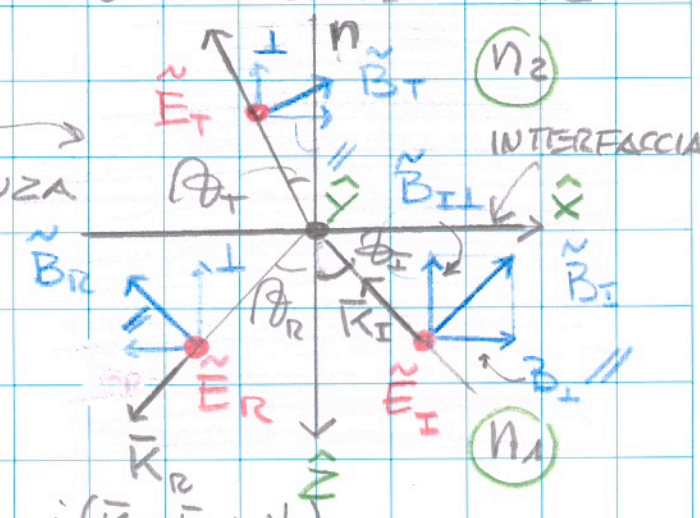 ⊥ n
n₂
Ẽ_T B̃_T
//
INTERFACCIA
θ_T ŷ B̃_I⊥ x̂
B̃_R ⊥ θ_I B̃_I
// θ_R K̄_I
Ẽ_R Ẽ_I B_I //
K̄_R ẑ n₁